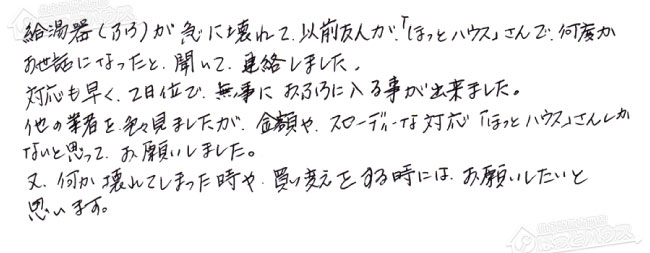 給湯器(ふろ)が急に壊れて、以前友人が、「ほっとハウス」さんで、何度か
お世話になったと、聞いて、連絡しました。
対応も早く、2日位で、無事に おふろに入る事が出来ました。
他の業者を色々見ましたが、金額や、スローディーな対応「ほっとハウス」さんしか
ないと思って、お願いしました。
又、何か壊れてしまった時や、買い変えをする時には、お願いしたいと
思います。
ほっとハウス